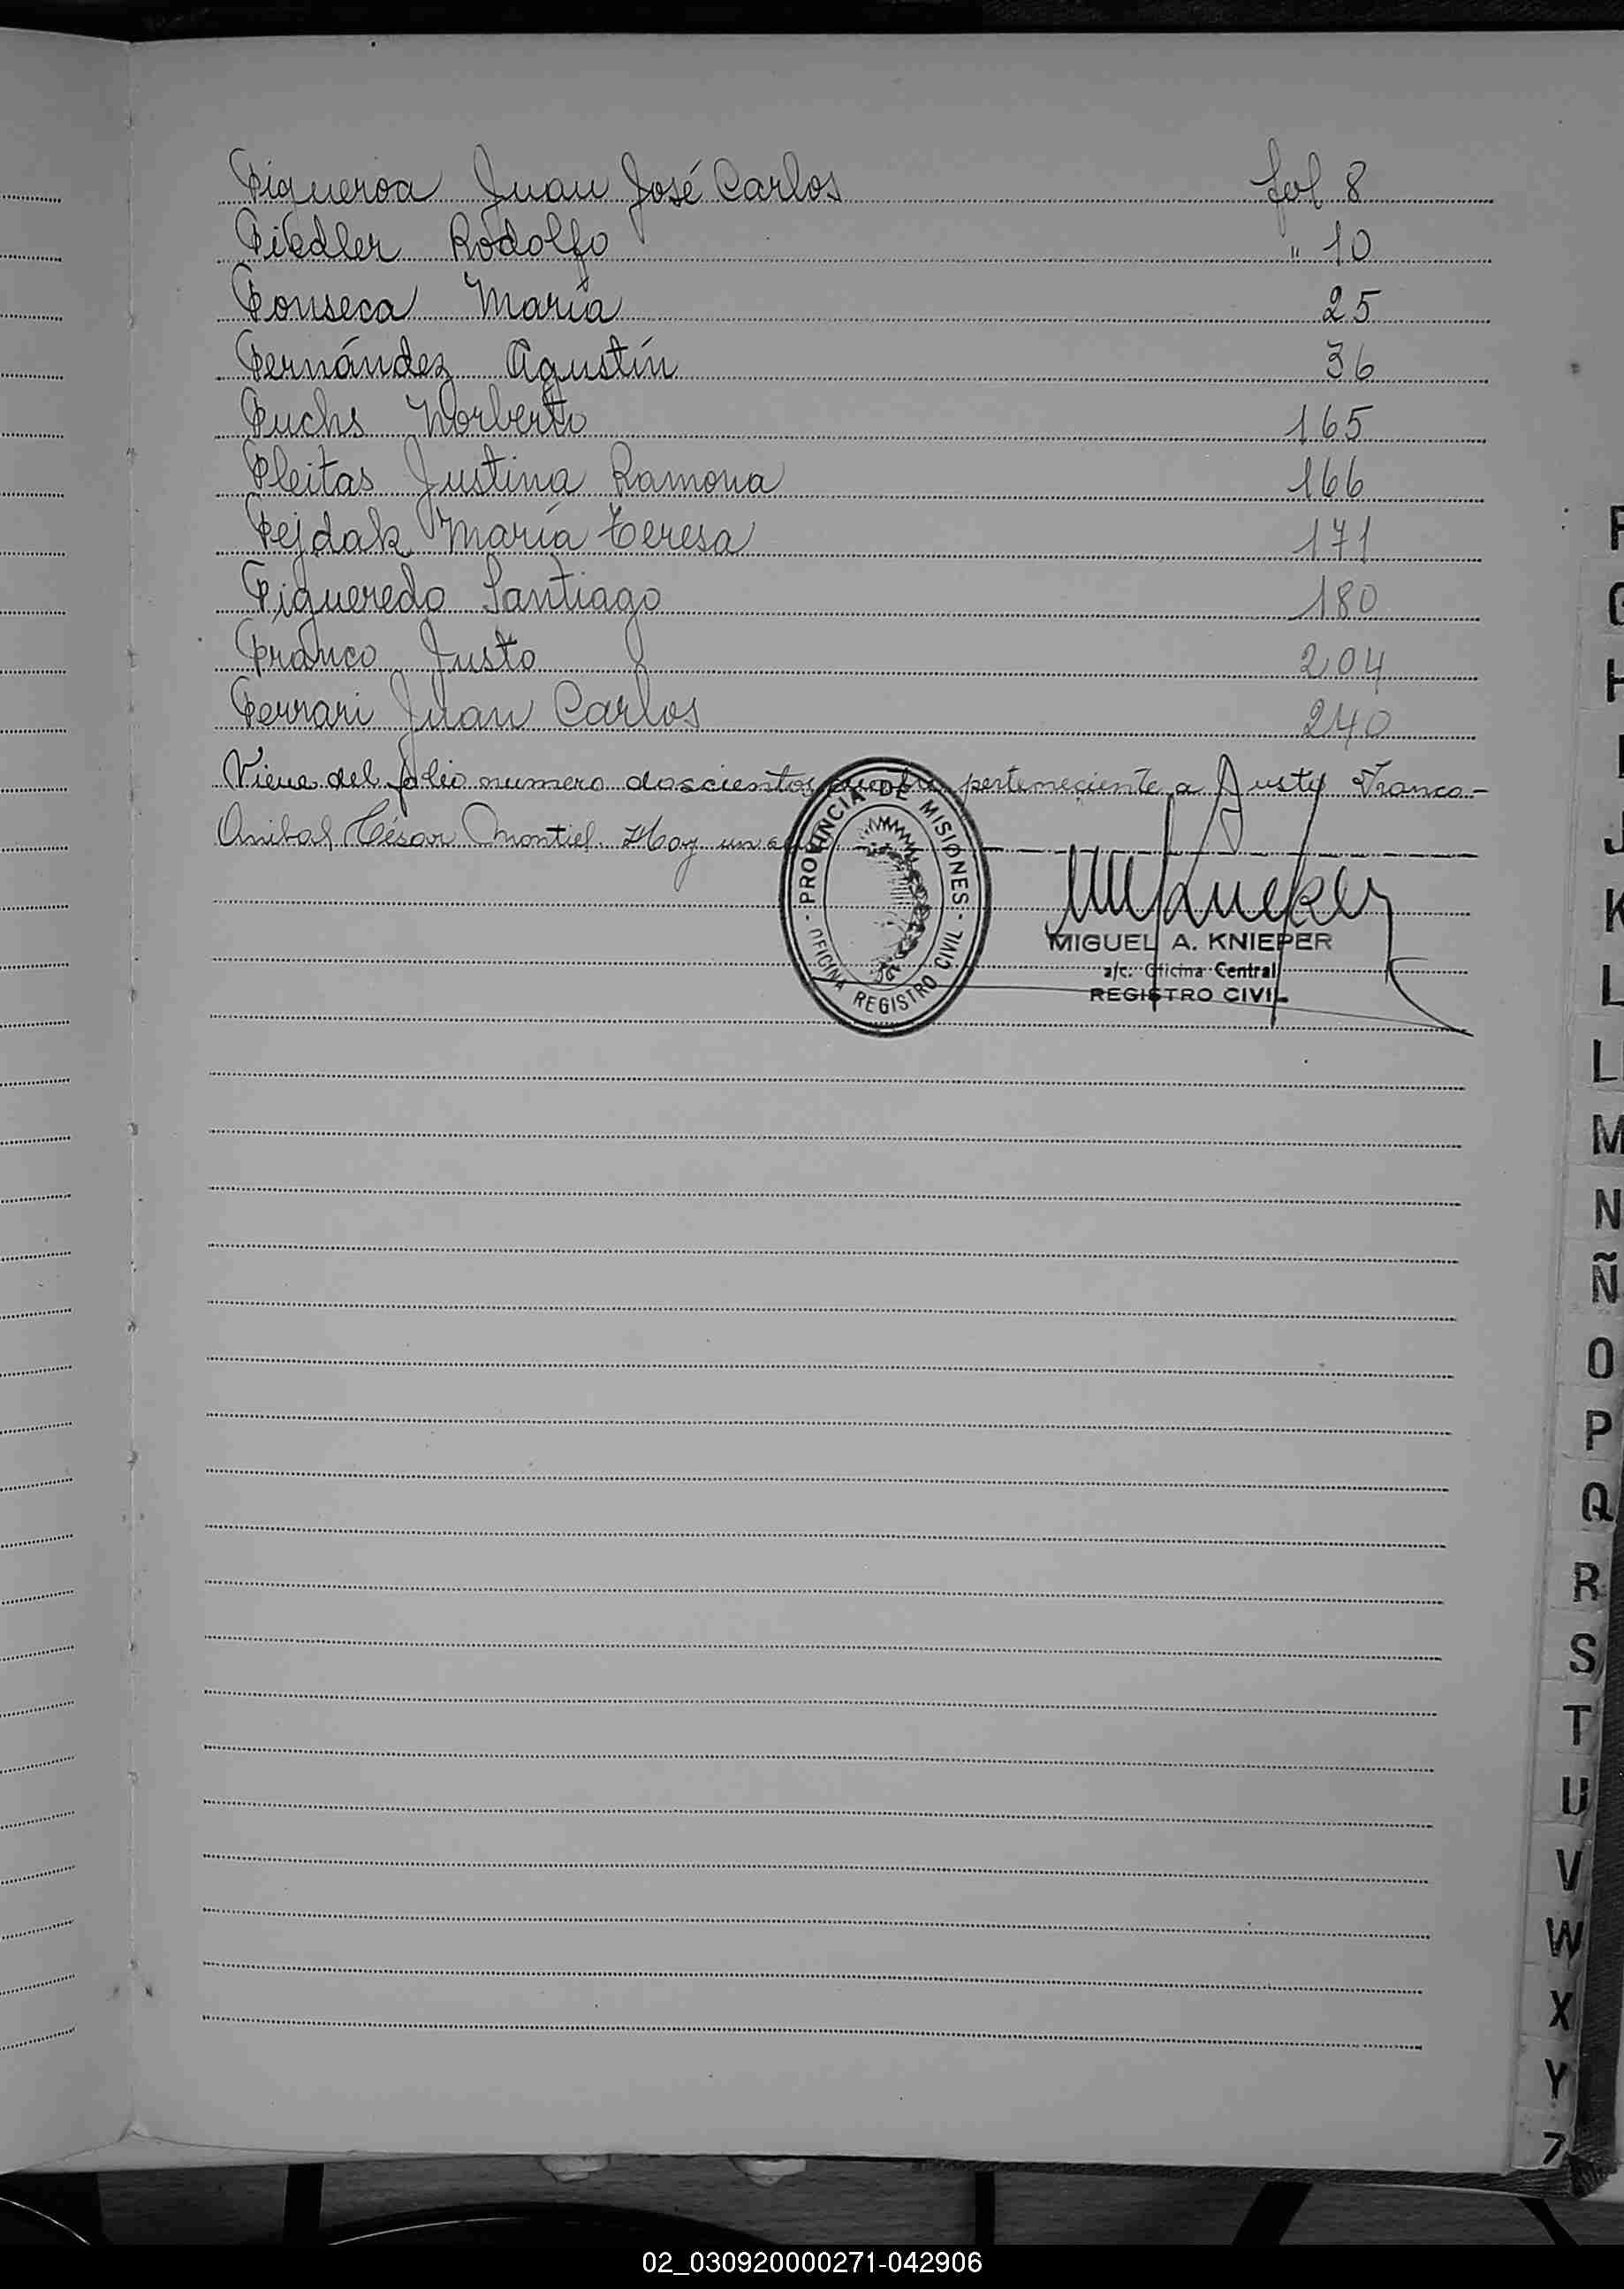 Figueroa Juan José Carlos fol 8
Fiedler Rodolfo " 10
Fonseca María 25
Fernández Agustín 36
Fuchs Norberto 165
Fleitas Justina Ramona 166
Fejdak María Teresa 171
Figueredo Santiago 180
Franco Justo 204
Ferrari Juan Carlos 240
Viene del folio numero doscientos perteneciente a Justo Franco-
Anibal César Montiel. Hay un
PROVINCIA DE MISIONES
OFICINA REGISTRO CIVIL
MIGUEL A. KNIEPER
a/c. Oficina Central
REGISTRO CIVIL
F
G
H
I
J
K
L
LL
M
N
Ñ
O
P
Q
R
S
T
U
V
W
X
Y
Z
02_030920000271-042906